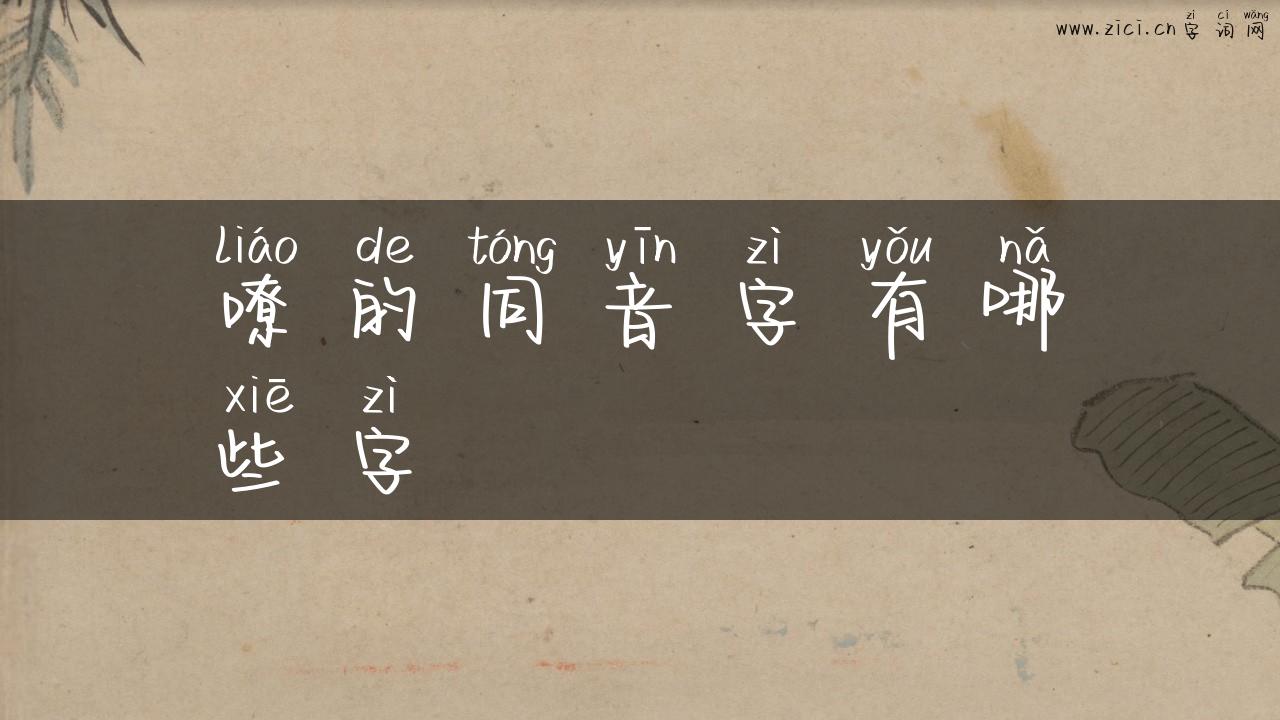 zì cí wǎng
www.zici.cn 字词网
liáo de tóng yīn zì yǒu nǎ
嘹的同音字有哪
xiē zì
些字